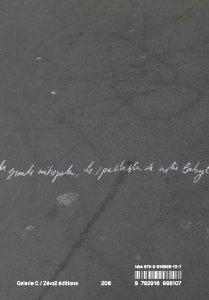 la grande métropole, le spectacle de notre Babyl
Galerie C / Zéro2 éditions
20€
9 782916 998107